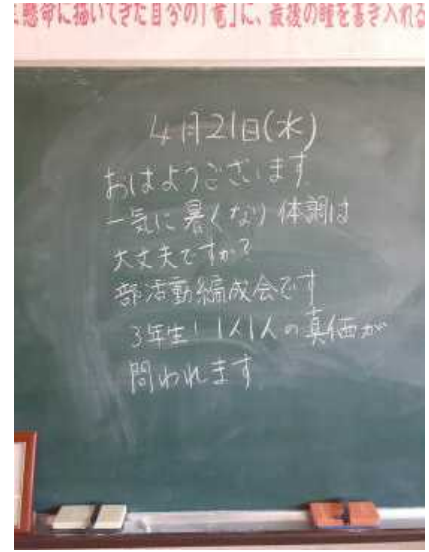 懸命に描いてきた自分の「竜」に、最後の瞳を書き入れる
4月21日(水)
おはようございます。
一気に暑くなり体調は
大丈夫ですか?
部活動編成会です
3年生!1人1人の真価が
問われます